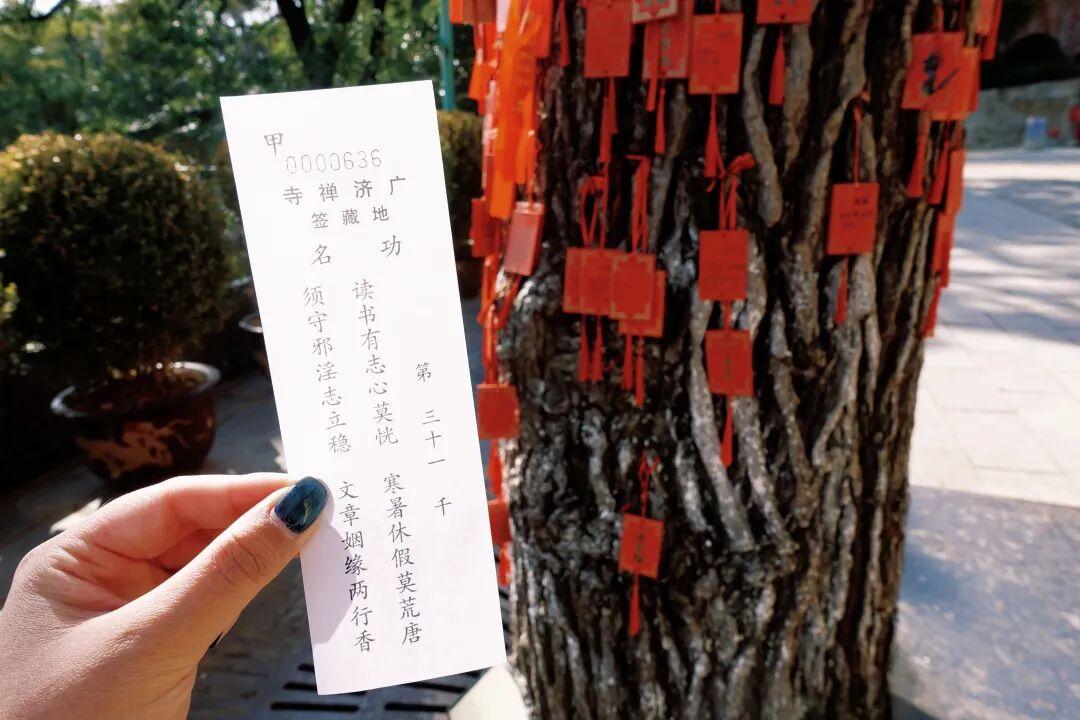 甲
0000636
广济禅寺
地藏签
功名
第 三十一 千
读书有志心莫恍 寒暑休假莫荒唐
须守邪淫志立稳 文章姻缘两行香